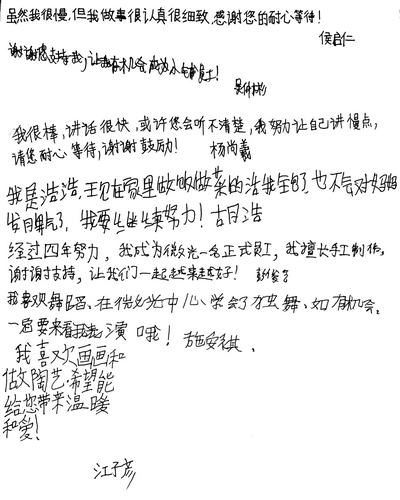 虽然我很慢,但我做事很认真很细致,感谢您的耐心等待!
侯启仁
谢谢您支持我,让我有机会成为小店员!
我很棒,讲话很快,或许您会听不清楚,我努力让自己讲慢点,
请您耐心等待,谢谢鼓励! 杨尚羲
我是浩浩,现在家里做饭做菜的活我全包了,也不会对妈妈
发月卑气了,我要继续努力! 胡浩
经过四年努力,我成为微光一名正式员工,我擅长手工制作,
谢谢支持,让我们一起越来越好!
我喜欢舞蹈、在微光中心学会了独舞、如有机会
一定要来看我表演哦! 施安祺.
我喜欢画画和
做陶艺.希望能
给您带来温暖
和爱!
江子彦